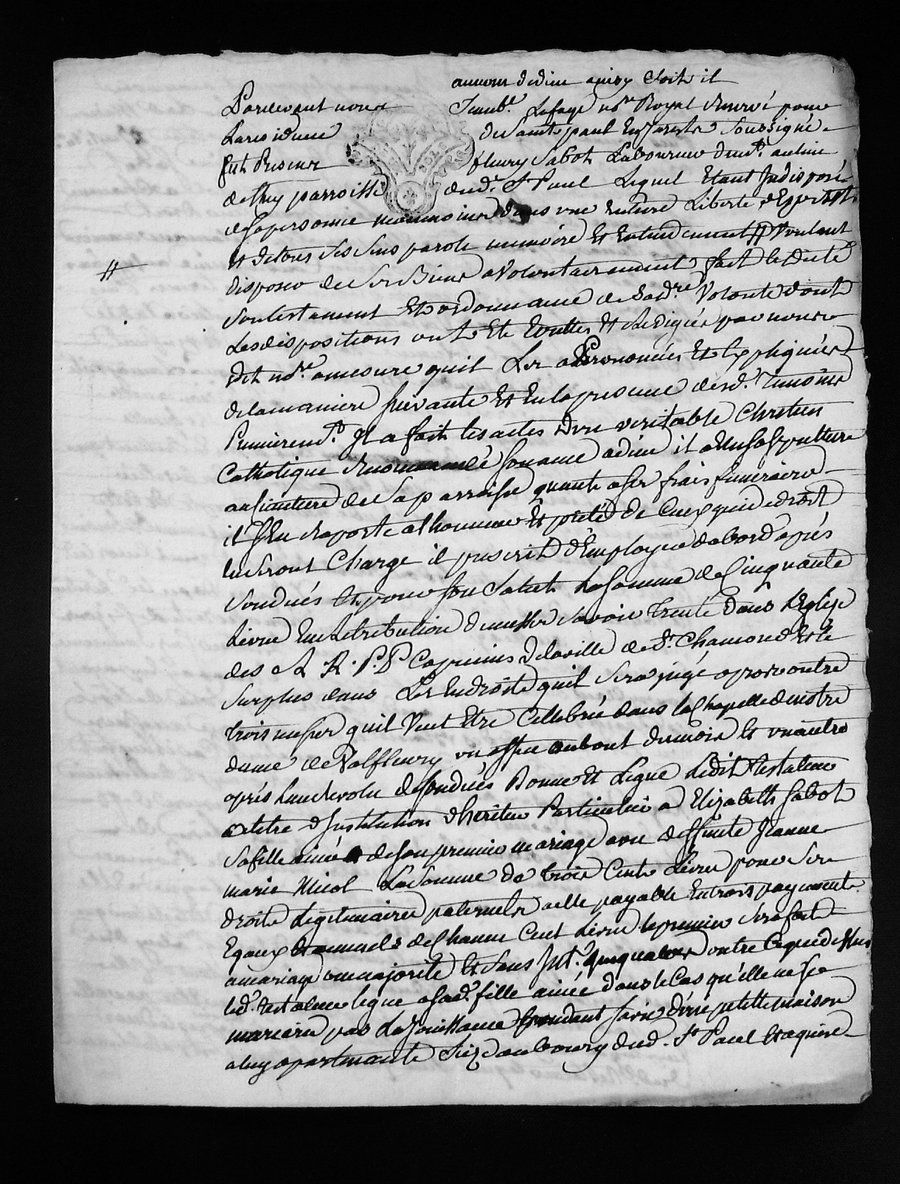 au nom de dieu ainsy soit il
Pardevant nous Lafage no.re Royal Reservé pour
La residence de Saint paul En Jarests Soussigné
fut Present fleury Sabot Laboureur dud.
de Luy parroisse dud. St. Paul Lequel Etant Indisposé
de sa personne neanmoins dans une Entiere Liberté d'Esprit
et de tous ses sens parole memoire Et Entendement # Voulant
disposer de ses Biens a Volontairement fait Et dicté
son testament Et ordonnance de Volonté dont
Les dispositions ont Eté Ecrittes Et Redigées par nous
dit no.re a mesure qu'il Les a Prononcées Et Expliquées
de la maniere suivante Et En la presence des d. Temoins
Premierem.t Il a fait les actes d'un veritable Chretien
Catholique Recommandé son ame a dieu il a Elu sa sepulture
au simetiere de Sa parroisse quant a ses frais funeraires
il s'En raporte a l'honneur Et pieté de Ceux qui de droit
En seront Chargé il prescrit d'Employer d'abord après
son decés Et pour son Salut La somme de Cinquante
Livres En retribution de messes Savoir trente dans l'Eglise
des R. R. P. P. Capucins de la ville de St. Chamond Et le
surplus dans Les Endroits qu'il sera jugé apropos outre
trois messes qu'il Veut Etre Cellebrées dans la Chapelle de notre
dame de Valfleury une aubout du mois Et un autre
aprés l'an revolu de son decés Donne Et Legue Ledit Testateur
a titre d'Institution d'heritiere Particuliere a Elizabeth Sabot
sa fille ainée de son premier mariage avec deffunte Jeanne
marie Nicol La somme de trois Cents Livres pour ses
droits Legitimaires paternels a elle payable En trois payements
Egaux Et annuels de Chacun Cent Livres le premier sera fait
a mariage ou majorité Et sans Int. outre ce que dessus
led. testateur legue a sa d. fille ainée dans le Cas qu'elle ne se
mariera pas La Jouissance pendant sa vie d'une petite maison
a luy apartenante Size au bourg dud. St. Paul
#